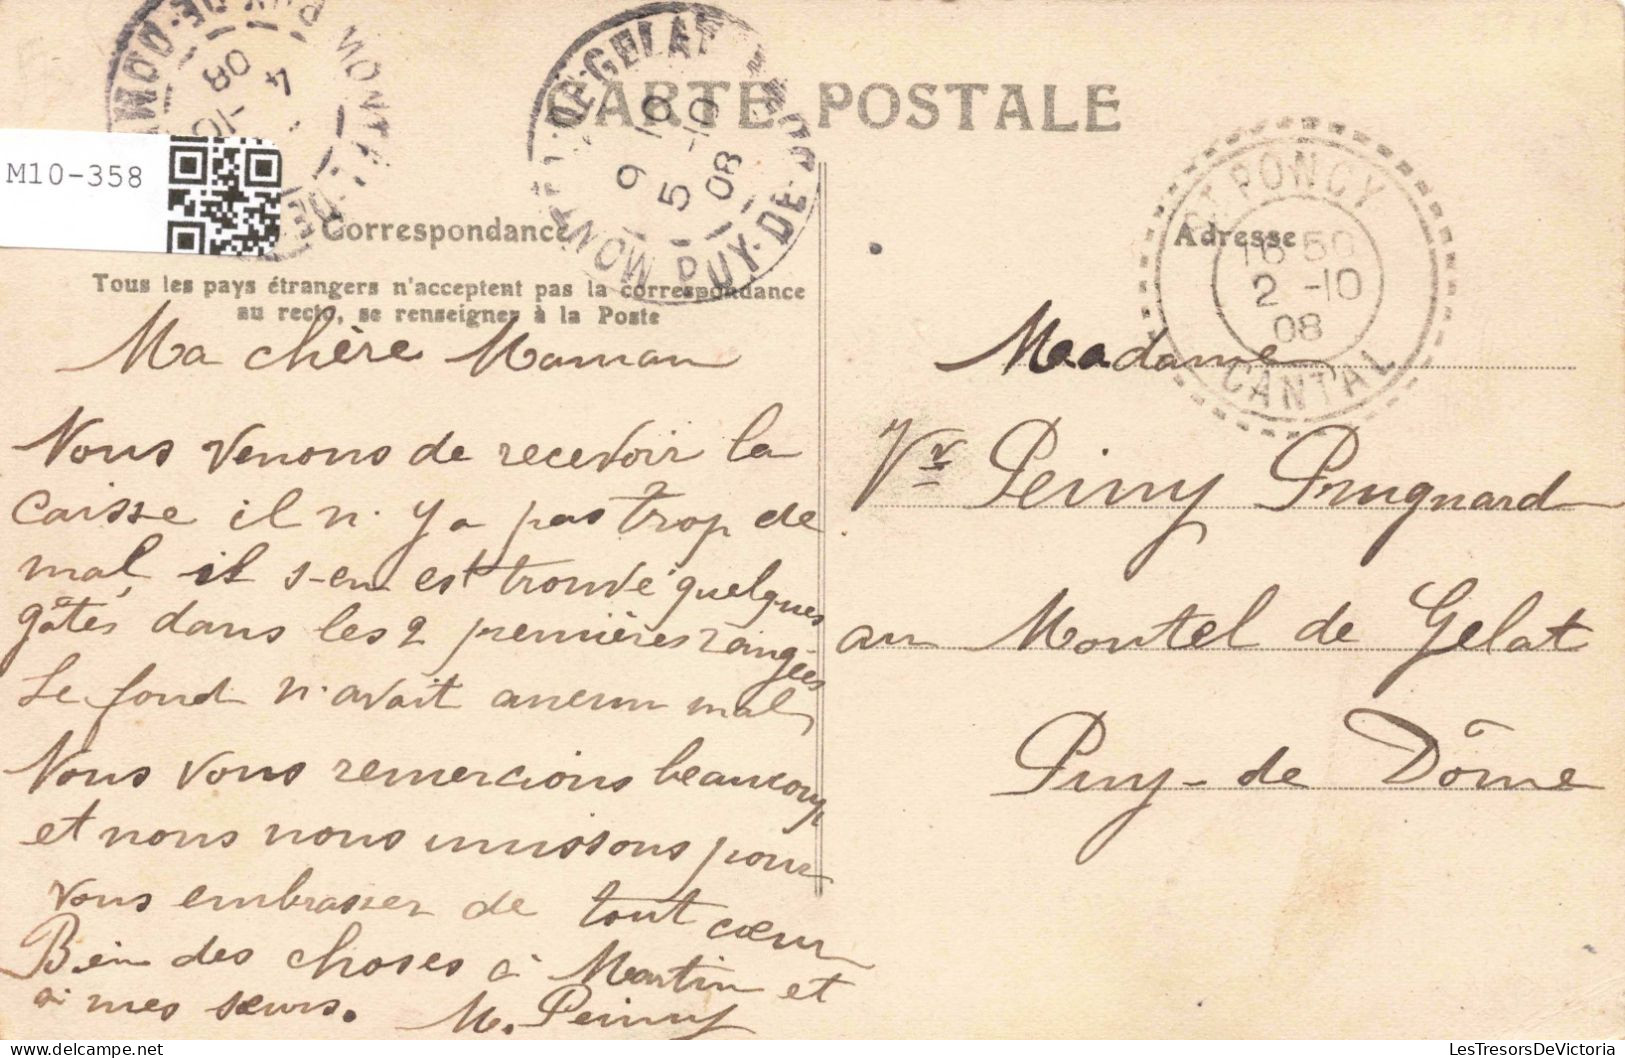 CARTE POSTALE
M10-358
MONTEL-DE-GELAT
9 10
5 -10
08
PUY-DE-DOME
ST PONCY
16 50
2 -10
08
CANTAL
Correspondance
Tous les pays étrangers n'acceptent pas la correspondance
au recto, se renseigner à la Poste
Adresse
Ma chère Maman
Nous venons de recevoir la
caisse il n'y a pas trop de
mal il s-en est trouvé quelques
gâtés dans les 2 premières rangées
Le fond n'avait aucun mal,
Nous vous remercions beaucoup
et nous nous unissons pour
vous embrasser de tout cœur
Bien des choses à Martin et
à mes sœurs. M. Peiny
Madame
Vve Peiny Prugnard
au Montel de Gelat
Puy-de Dôme
LesTresorsDeVictoria